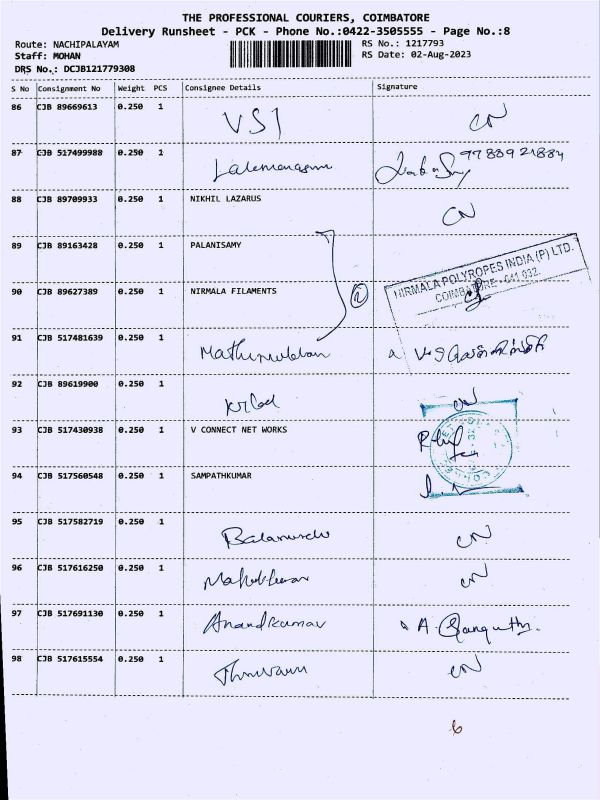 THE PROFESSIONAL COURIERS, COIMBATORE
Delivery Runsheet - PCK - Phone No.:0422-3505555 - Page No.:8
Route: NACHIPALAYAM RS No.: 1217793
Staff: MOHAN RS Date: 02-Aug-2023
DRS No.: DCJB121779308
S No Consignment No Weight PCS Consignee Details Signature
86 CJB 89669613 0.250 1 VSI CN
87 CJB 517499988 0.250 1 9788921884
88 CJB 89709933 0.250 1 NIKHIL LAZARUS CN
89 CJB 89163428 0.250 1 PALANISAMY
NIRMALA POLYROPES INDIA (P) LTD.
COIMBATORE - 641 032.
90 CJB 89627389 0.250 1 NIRMALA FILAMENTS
91 CJB 517481639 0.250 1
92 CJB 89619900 0.250 1 CN
93 CJB 517430938 0.250 1 V CONNECT NET WORKS
94 CJB 517560548 0.250 1 SAMPATHKUMAR
95 CJB 517582719 0.250 1 CN
96 CJB 517616250 0.250 1 CN
97 CJB 517691130 0.250 1 Anandkumar A.
98 CJB 517615554 0.250 1 CN
6